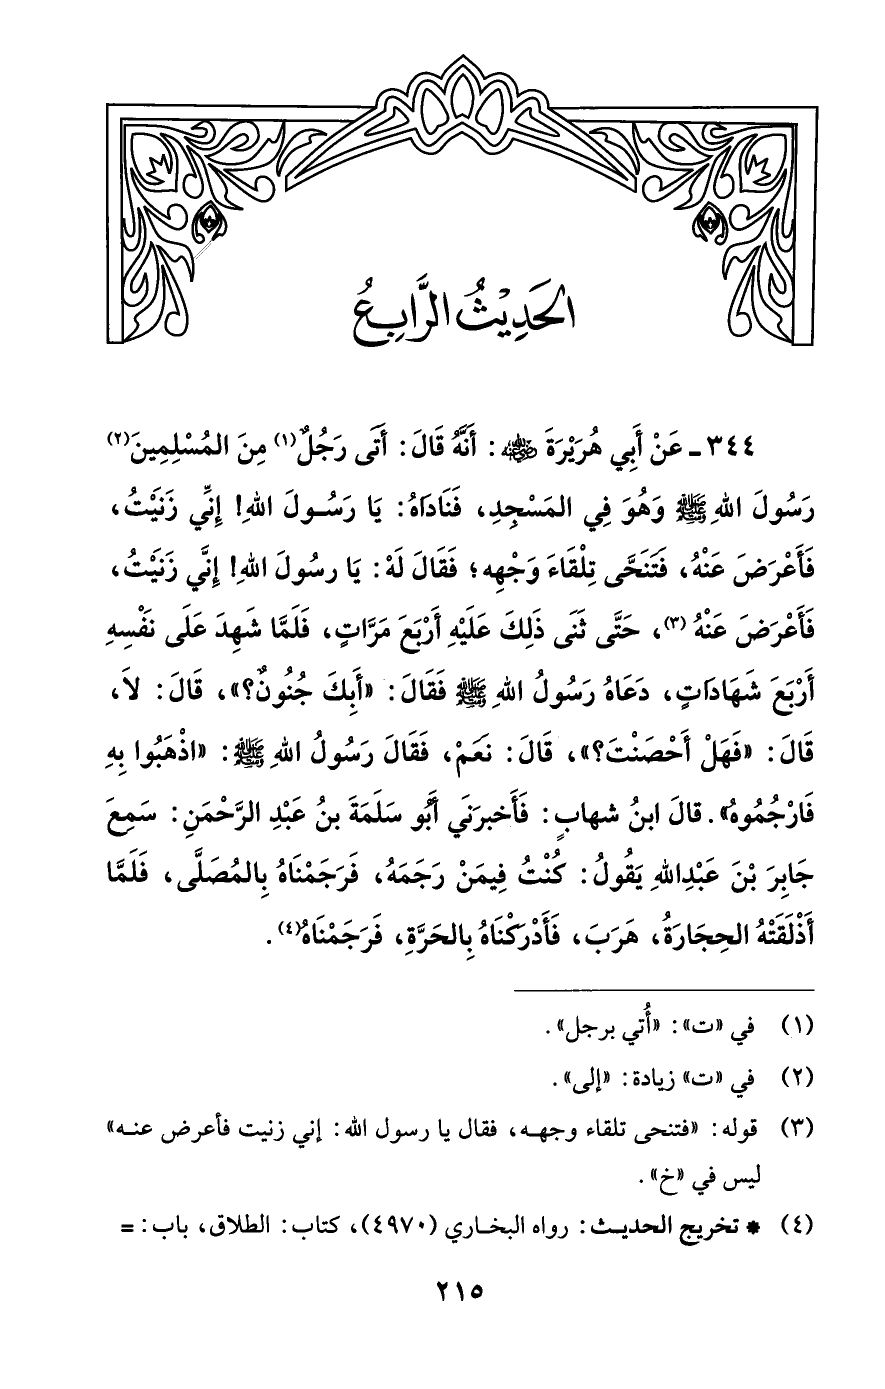 الحَدِيْثُ الرَّابِعُ
٣٤٤ ـ عَنْ أَبِي هُرَيْرَةَ ﵁: أَنَّهُ قَالَ: أَتَى رَجُلٌ(١) مِنَ المُسْلِمِينَ(٢)
رَسُولَ اللهِ ﷺ وَهُوَ فِي المَسْجِدِ، فَنَادَاهُ: يَا رَسُولَ اللهِ! إِنِّي زَنَيْتُ،
فَأَعْرَضَ عَنْهُ، فَتَنَحَّى تِلْقَاءَ وَجْهِه؛ فَقَالَ لَهْ: يَا رسُولَ اللهِ! إِنَّي زَنَيْتُ،
فَأَعْرَضَ عَنْهُ(٣)، حَتَّى ثَنَى ذَلِكَ عَلَيْهِ أَرْبَعَ مَرَّاتٍ، فَلَمَّا شَهِدَ عَلَى نَفْسِهِ
أَرْبَعَ شَهَادَاتٍ، دَعَاهُ رَسُولُ اللهِ ﷺ فَقَالَ: «أَبِكَ جُنُونٌ؟»، قَالَ: لاَ،
قَالَ: «فَهَلْ أَحْصَنْتَ؟»، قَالَ: نَعَمْ، فَقَالَ رَسُولُ اللهِ ﷺ: «اذْهَبُوا بِهِ
فَارْجُمُوهُ». قالَ ابنُ شهابٍ: فَأَخبرَنَي أَبُو سَلَمَةَ بنُ عَبْدِ الرَّحْمَنِ: سَمِعَ
جَابِرَ بْنَ عَبْدِاللهِ يَقُولُ: كُنْتُ فِيمَنْ رَجَمَهُ، فَرَجَمْنَاهُ بِالمُصَلَّى، فَلَمَّا
أَذْلَقَتْهُ الحِجَارَةُ، هَرَبَ، فَأَدْرَكْنَاهُ بِالحَرَّةِ، فَرَجَمْنَاهُ(٤).
(١) في «ت»: «أُتي برجل».
(٢) في «ت» زيادة: «إلى».
(٣) قوله: «فتنحى تلقاء وجهه، فقال يا رسول الله: إني زنيت فأعرض عنه»
ليس في «خ».
(٤) * تخريج الحديث: رواه البخاري (٤٩٧٠)، كتاب: الطلاق، باب: =
٢١٥